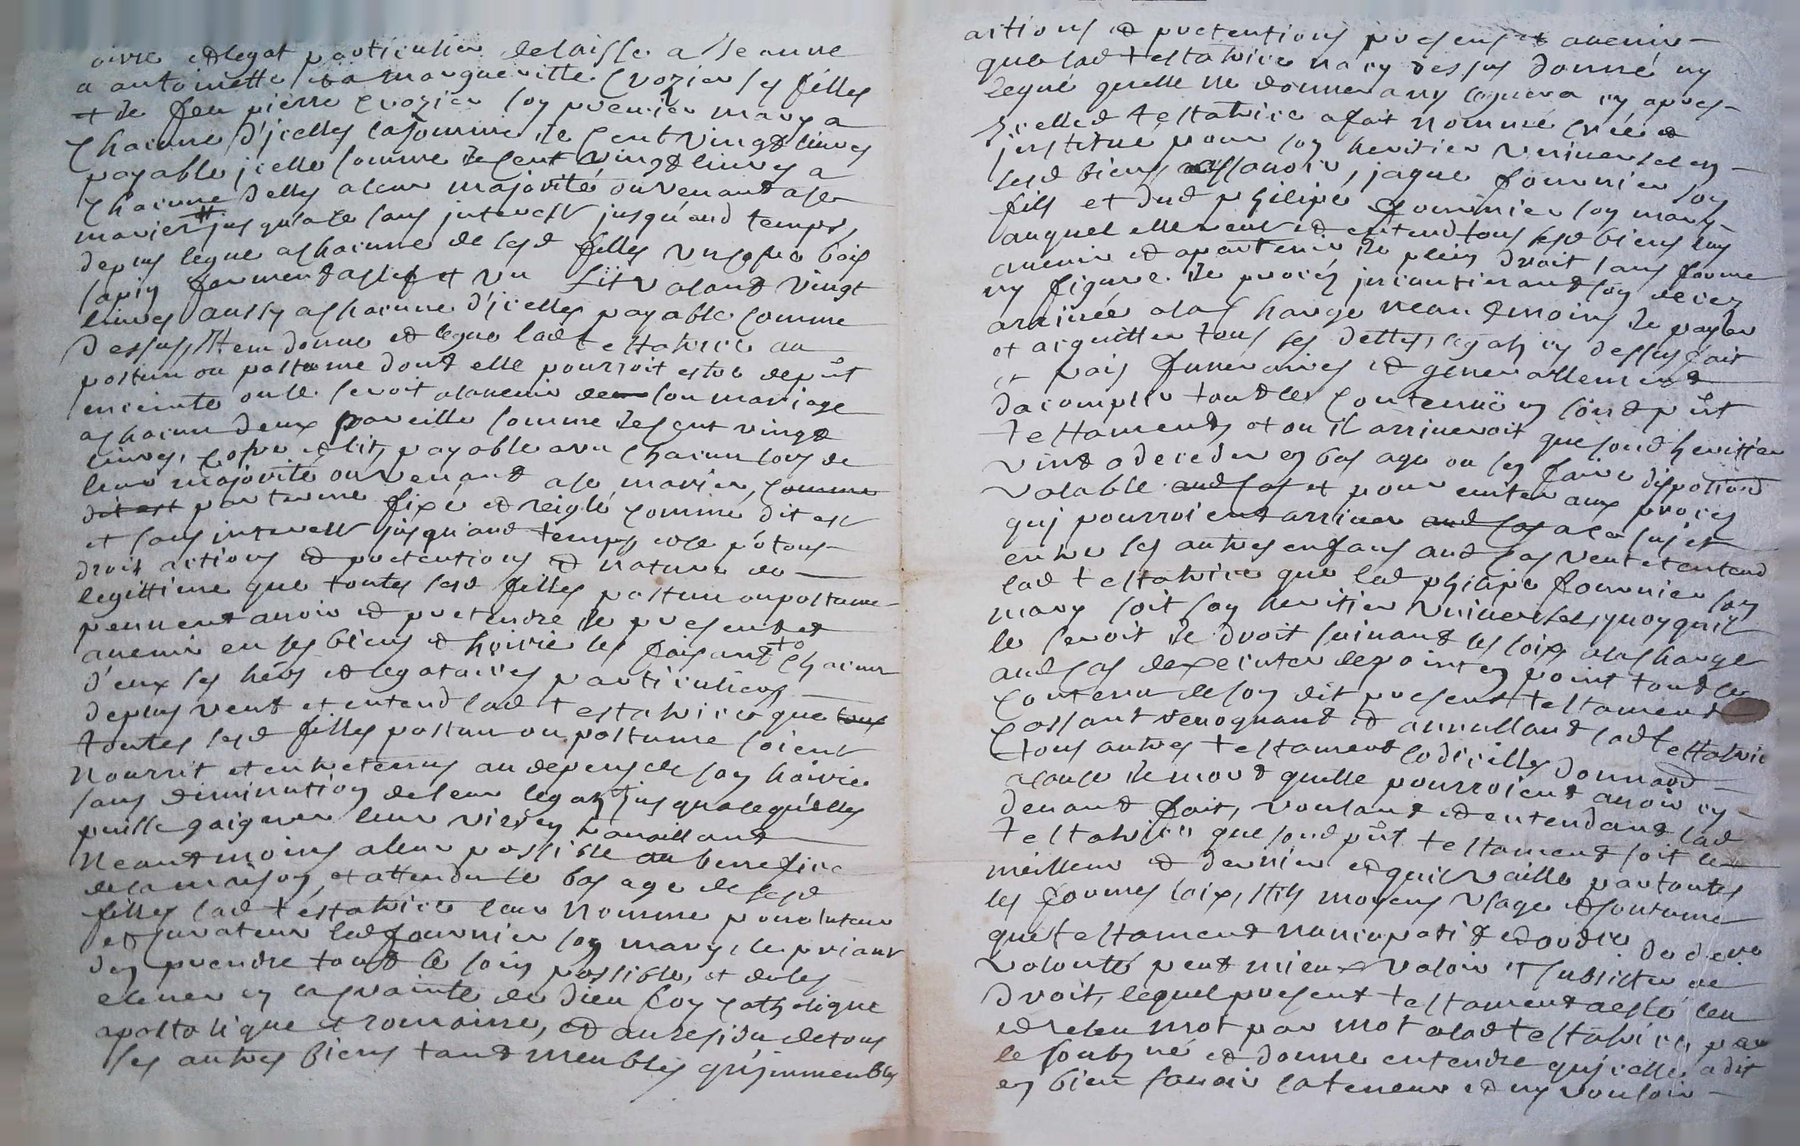 oivre et legat particulier delaisse a Jeanne
a antoinette et a margueritte Crozier ses filles
et de feu pierre Crozier son premier mary a
Chacune d'jcelles la somme de Cent Vingt livres
payable jcelle somme de Cent Vingt livres a
Chacune delles a leur majorité ou Venant a se
marier jusqu'a ce sans jnterest jusqu'aud temps,
depius legue a chacune de sesd filles Un cofre bois
sapin fermant a clef et Un Lit Valant Vingt
livres aussy a chacune d'jcelles payable comme
dessus, Item donne et legue lad testatrice au
postum ou postume dont elle pourroit estre depnt
enceinte ou le seroit alavenir de son mariage
a chacun deux pareille somme de Cent vingt
livres, Cofre et lit, payable a un Chacun lors de
leur majorité ou Venant a se marier, comme
dit est par terme fixé et reiglé comme dit est
et sans jnterest jusqu'aud temps et ce p.r tous
droit actions et pretentions et nature de
legittime que toutes sesd filles postum ou postume
peuvent avoir et pretendre de present et
avenir en ses biens et hoirie les faisant Chacun
d'eux ses hérs et legataires particuliers
deplus veut et entend lad testatrice que tous
toutes sesd filles postum ou postume soient
Nourrit et entretenus au depens de son hoirie
sans diminution de leur legat jusqua ce qu'elles
puisse gaigner leur vie en travaillant
Neantmoins a leur possible au benefice
de la maison, et attendu le bas age de sesd
filles lad testatrice leur Nomme pour tuteur
et Curateur led fournier son mary, le priant
d'en prendre tout le soin possible, et de les
elever en la Crainte de dieu foy Catholique
apostolique et romaine, et au residu de tous
ses autres biens tant meubles qu'jmmeubles
actions et pretentions presens et avenir
que lad testatrice n'a cy dessus donné ny
legué qu'elle ne donnera ny leguera cy apres
Jcelle d testatrice a fait Nommé Créé et
jnstitué pour son heritier Universel en
sesd biens assavoir, jaque fournier son
fils et dud philipe fournier son mary
auquel elle veut et entend tous sesd biens luy
avenir et apartenir de plein droit sans forme
ny figure de procés jncontinant son deces
arrivée a la Charge neantmoins de payer
et acquitter tous ses dettes, legats cy dessus fait
et frais funeraires et generallement
dacomplir tout le Contenu en sond pnt
testament, et ou il arriveroit que sond heritier
vint a deceder en bas age ou sen faire disposition
valable aud cas et pour eviter aux proces
qui pourroient arriver aud cas a ce sujet
entre les autres enfans aud cas veut et entend
lad testatrice que led philipe fournier son
mary soit son heritier Universel, quoyquil
le seroit de droit suivant les loix a la Charge
aud cas de xecuter de point en point tout le
Contenu de son dit present testament
Cassant revoquant et annullant lad testatrice
tous autres testament Codicilles donnaon
a Cause de mort quelle pourroient avoir cy
devant fait, voulant et entendant lad
testatrice que sond pnt testament soit le
meilleur et dernier et quil vaille par toutes
les formes loix, stils moyens Usage et Coutume
que testament nuncupatif et ordre de dere
volonté peut mieux valoir et subsister de
droit, lequel present testament a esté leu
et releu mot par mot a lad testatrice, par
le soubzné et donne entendre qu'jcelle a dit
en bien scavoir la teneur et ny vouloir